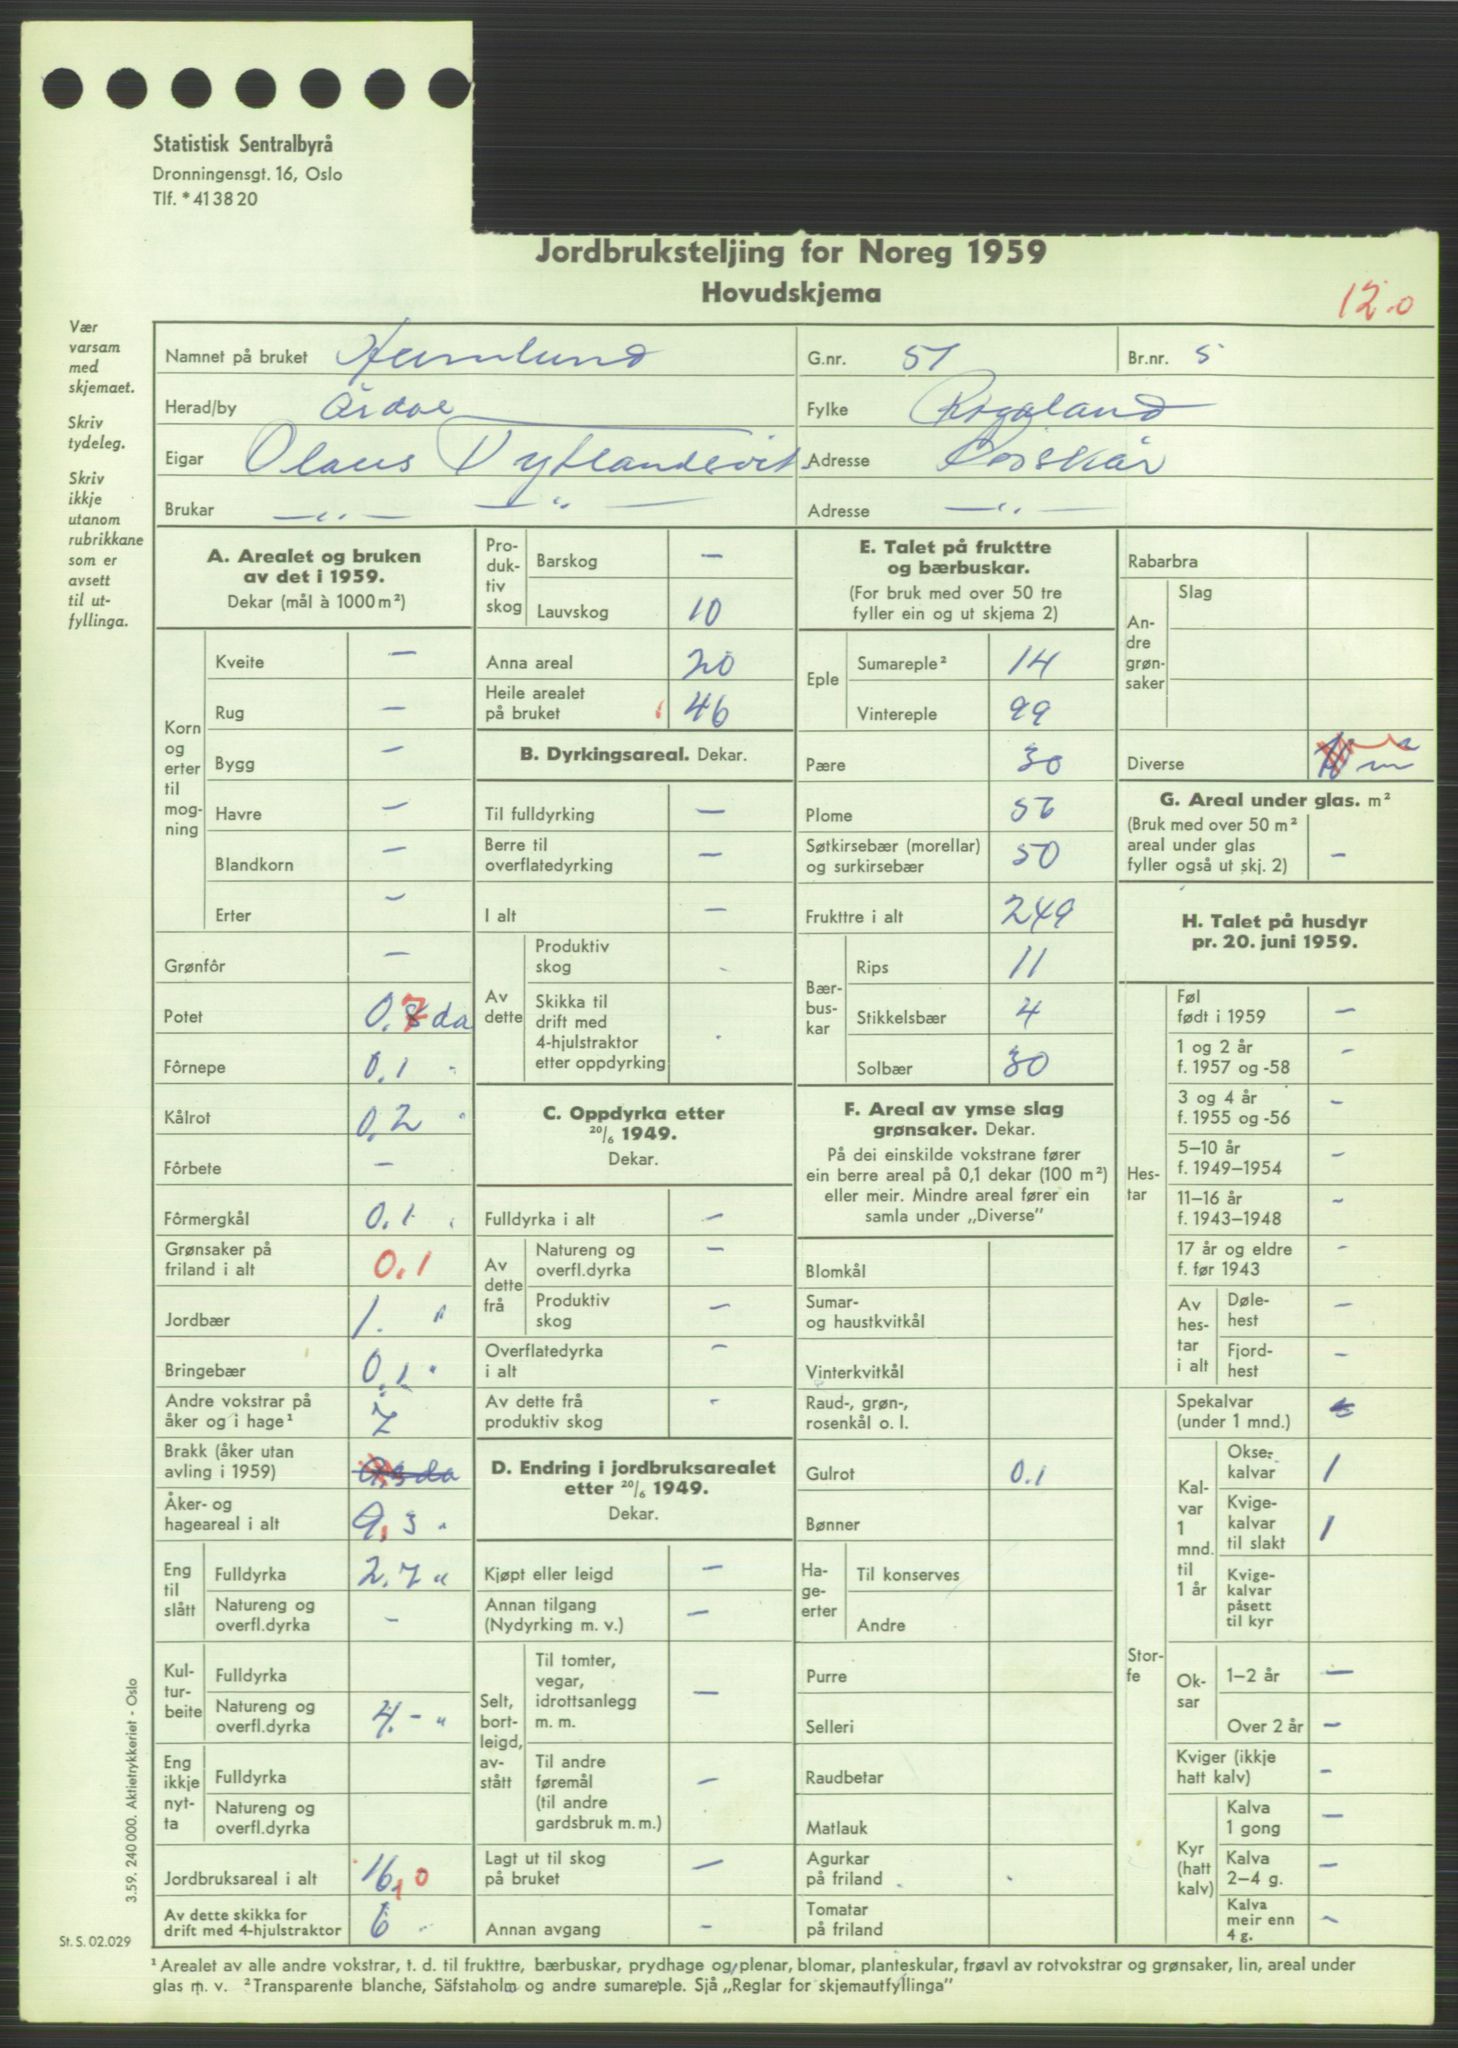 Statistisk Sentralbyrå
Dronningensgt. 16, Oslo
Tlf. *41 38 20
Jordbruksteljing for Noreg 1959
Hovudskjema
12.0
Vær
varsam
med
skjemaet.
Skriv
tydeleg.
Skriv
ikkje
utanom
rubrikkane
som er
avsett
til ut-
fyllinga.
Namnet på bruket
G.nr. 51 Br.nr. 5
Herad/by Årdal Fylke Rogaland
Eigar Olaus Tytlandsvik Adresse
Brukar — " — — " — Adresse — " —
A. Arealet og bruken
av det i 1959.
Dekar (mål à 1000 m²)
Korn
og
erter
til
mog-
ning
Kveite —
Rug —
Bygg —
Havre —
Blandkorn —
Erter —
Grønfôr —
Potet 0,7 da
Fôrnepe 0,1 "
Kålrot 0,2 "
Fôrbete —
Fôrmergkål 0,1 "
Grønsaker på
friland i alt 0,1
Jordbær 1. "
Bringebær 0,1 "
Andre vokstrar på
åker og i hage¹ 7
Brakk (åker utan
avling i 1959)
Åker- og
hageareal i alt 9,3 "
Eng
til
slått
Fulldyrka 2,7 "
Natureng og
overfl.dyrka —
Kul-
tur-
beite
Fulldyrka
Natureng og
overfl.dyrka 4.- "
Eng
ikkje
nyt-
ta
Fulldyrka
Natureng og
overfl.dyrka
Jordbruksareal i alt 16,0
Av dette skikka for
drift med 4-hjulstraktor 6 "
Pro-
duk-
tiv
skog
Barskog —
Lauvskog 10
Anna areal 20
Heile arealet
på bruket 46
B. Dyrkingsareal. Dekar.
Til fulldyrking —
Berre til
overflatedyrking —
I alt —
Av
dette
Produktiv
skog
Skikka til
drift med
4-hjulstraktor
etter oppdyrking
C. Oppdyrka etter
20/6 1949.
Dekar.
Fulldyrka i alt —
Av
dette
frå
Natureng og
overfl.dyrka —
Produktiv
skog —
Overflatedyrka
i alt —
Av dette frå
produktiv skog -
D. Endring i jordbruksarealet
etter 20/6 1949.
Dekar.
Kjøpt eller leigd —
Annan tilgang
(Nydyrking m. v.) —
Selt,
bort-
leigd,
av-
stått
Til tomter,
vegar,
idrottsanlegg
m. m. —
Til andre
føremål
(til andre
gardsbruk m. m.) —
Lagt ut til skog
på bruket —
Annan avgang —
E. Talet på frukttre
og bærbuskar.
(For bruk med over 50 tre
fyller ein og ut skjema 2)
Eple
Sumareple² 14
Vintereple 99
Pære 30
Plome 56
Søtkirsebær (morellar)
og surkirsebær 50
Frukttre i alt 249
Bær-
bus-
kar
Rips 11
Stikkelsbær 4
Solbær 30
F. Areal av ymse slag
grønsaker. Dekar.
På dei einskilde vokstrane fører
ein berre areal på 0,1 dekar (100 m²)
eller meir. Mindre areal fører ein
samla under „Diverse”
Blomkål
Sumar-
og haustkvitkål
Vinterkvitkål
Raud-, grøn-,
rosenkål o. l.
Gulrot 0.1
Bønner
Ha-
ge-
erter
Til konserves
Andre
Purre
Selleri
Raudbetar
Matlauk
Agurkar
på friland
Tomatar
på friland
Rabarbra
An-
dre
grøn-
saker
Slag
Diverse
G. Areal under glas. m²
(Bruk med over 50 m²
areal under glas
fyller også ut skj. 2) —
H. Talet på husdyr
pr. 20. juni 1959.
Hes-
tar
Føl
født i 1959 —
1 og 2 år
f. 1957 og -58 —
3 og 4 år
f. 1955 og -56 —
5–10 år
f. 1949–1954 —
11–16 år
f. 1943–1948 —
17 år og eldre
f. før 1943 -
Av
hes-
tar
i alt
Døle-
hest —
Fjord-
hest —
Stor-
fe
Spekalvar
(under 1 mnd.)
Kal-
var
1
mnd.
til
1 år
Okse-
kalvar 1
Kvige-
kalvar
til slakt 1
Kvige-
kalvar
påsett
til kyr
Ok-
sar
1–2 år —
Over 2 år —
Kviger (ikkje
hatt kalv) —
Kyr
(hatt
kalv)
Kalva
1 gong —
Kalva
2–4 g. —
Kalva
meir enn
4 g. —
3.59. 240 000. Aktietrykkeriet - Oslo
St. S. 02.029
¹ Arealet av alle andre vokstrar, t. d. til frukttre, bærbuskar, prydhage og plenar, blomar, planteskular, frøavl av rotvokstrar og grønsaker, lin, areal under
glas m. v. ² Transparente blanche, Säfstaholm og andre sumareple. Sjå „Reglar for skjemautfyllinga”